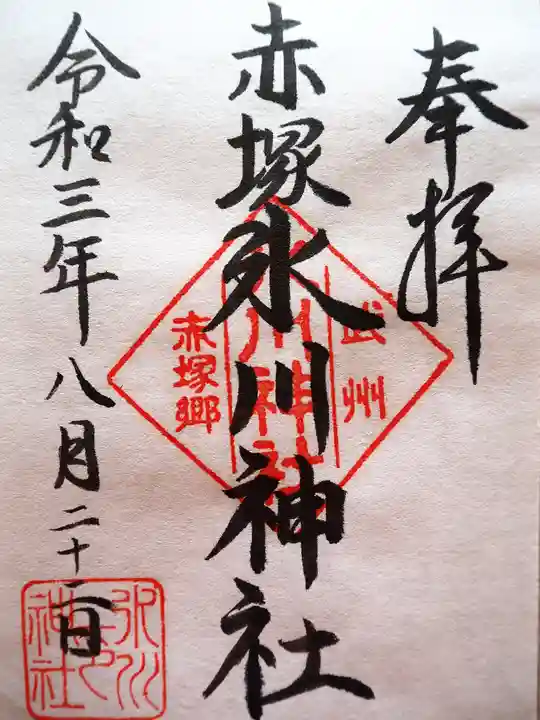 奉拝
武州
氷川神社
赤塚郷
赤塚氷川神社
令和三年八月二十二日
氷川
神社